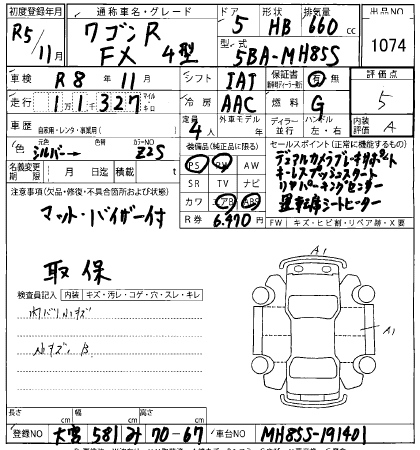 初度登録年月 通称車名・グレード ドア 形状 排気量 出品NO
R5/11月 ワゴンR FX 4型 5 HB 660cc 1074
型式 5BA-MH85S
車検 R8年11月 シフト IAT 保証書 有 無 評価点
走行 11327 マイル キロ 冷房 AAC 燃料 G 5
車歴 自家用・レンタ・事業用( ) 定員 4人 外車モデル 年 ディーラー 並行 ハンドル 左・右 内装 A
色 元色 シルバー→ カラーNO Z2S 装備品(純正品に限る) セールスポイント(正常に機能するもの)
名義変更期限 月 日 積載 t PS PW AW デュアルカメラブレーキサポート
SR TV ナビ キーレスプッシュスタート
注意事項(欠品・修復・不具合箇所および状態) カワ エアB ABS リヤパーキングセンサー
マット・バイザー付 R券 6.970円 運転席シートヒーター
FW キズ・ヒビ割・リペア跡・X要
取保
検査員記入 内装 キズ・汚レ・コゲ・穴・スレ・キレ
A1
A1
小キズ
長さ cm 幅 cm 高さ cm
登録NO 大宮 581 み 70-67 車台NO MH85S-191401